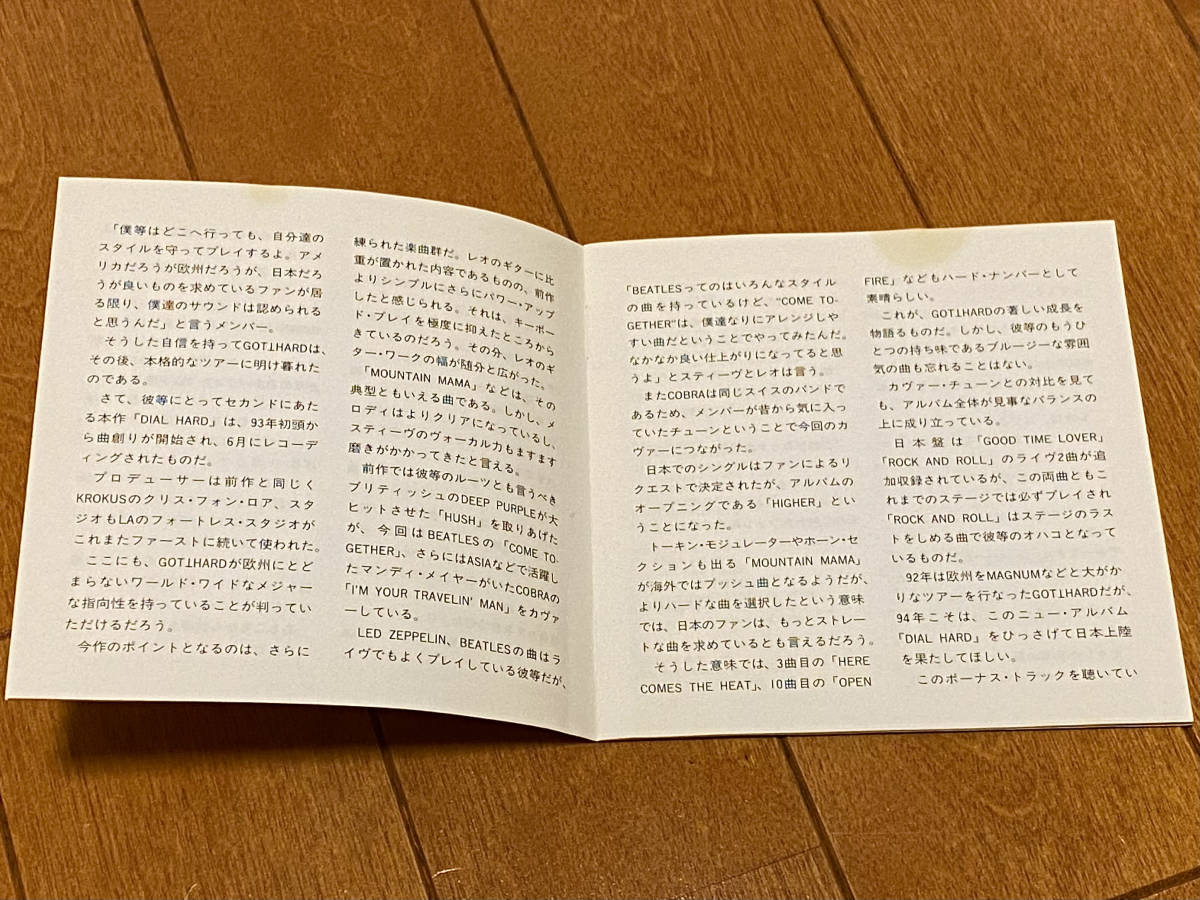 「僕等はどこへ行っても、自分達の
スタイルを守ってプレイするよ。アメ
リカだろうが欧州だろうが、日本だろ
うが良いものを求めているファンが居
る限り、僕達のサウンドは認められる
と思うんだ」と言うメンバー。
そうした自信を持ってGOT⊥HARDは、
その後、本格的なツアーに明け暮れた
のである。
さて、彼等にとってセカンドにあた
る本作「DIAL HARD」は、93年初頭か
ら曲創りが開始され、6月にレコーデ
ィングされたものだ。
プロデューサーは前作と同じく
KROKUSのクリス・フォン・ロア、スタ
ジオもLAのフォートレス・スタジオが
これまたファーストに続いて使われた。
ここにも、GOT⊥HARDが欧州にとど
まらないワールド・ワイドなメジャー
な指向性を持っていることが判ってい
ただけるだろう。
今作のポイントとなるのは、さらに
練られた楽曲群だ。レオのギターに比
重が置かれた内容であるものの、前作
よりシンプルにさらにパワー・アップ
したと感じられる。それは、キーボー
ド・プレイを極度に抑えたところから
きているのだろう。その分、レオのギ
ター・ワークの幅が随分と広がった。
「MOUNTAIN MAMA」などは、その
典型ともいえる曲である。しかし、メ
ロディはよりクリアになっているし、
スティーヴのヴォーカル力もますます
磨きがかかってきたと言える。
前作では彼等のルーツとも言うべき
ブリティッシュのDEEP PURPLEが大
ヒットさせた「HUSH」を取りあげた
が、今回はBEATLESの「COME TO-
GETHER」、さらにはASIAなどで活躍し
たマンディ・メイヤーがいたCOBRAの
「I'M YOUR TRAVELIN' MAN」をカヴァ
ーしている。
LED ZEPPELIN、BEATLESの曲はラ
イヴでもよくプレイしている彼等だが、
「BEATLESってのはいろんなスタイル
の曲を持っているけど、“COME TO-
GETHER”は、僕達なりにアレンジしや
すい曲だということでやってみたんだ。
なかなか良い仕上がりになってると思
うよ」とスティーヴとレオは言う。
またCOBRAは同じスイスのバンドで
あるため、メンバーが昔から気に入っ
ていたチューンということで今回のカ
ヴァーにつながった。
日本でのシングルはファンによるリ
クエストで決定されたが、アルバムの
オープニングである「HIGHER」とい
うことになった。
トーキン・モジュレーターやホーン・セ
クションも出る「MOUNTAIN MAMA」
が海外ではプッシュ曲となるようだが、
よりハードな曲を選択したという意味
では、日本のファンは、もっとストレー
トな曲を求めているとも言えるだろう。
そうした意味では、3曲目の「HERE
COMES THE HEAT」、10曲目の「OPEN
FIRE」などもハード・ナンバーとして
素晴らしい。
これが、GOT⊥HARDの著しい成長を
物語るものだ。しかし、彼等のもうひ
とつの持ち味であるブルージーな雰囲
気の曲も忘れることはない。
カヴァー・チューンとの対比を見て
も、アルバム全体が見事なバランスの
上に成り立っている。
日本盤は「GOOD TIME LOVER」
「ROCK AND ROLL」のライヴ2曲が追
加収録されているが、この両曲ともこ
れまでのステージでは必ずプレイされ
「ROCK AND ROLL」はステージのラス
トをしめる曲で彼等のオハコとなって
いるものだ。
92年は欧州をMAGNUMなどと大がか
りなツアーを行なったGOT⊥HARDだが、
94年こそは、このニュー・アルバム
「DIAL HARD」をひっさげて日本上陸
を果たしてほしい。
このボーナス・トラックを聴いてい